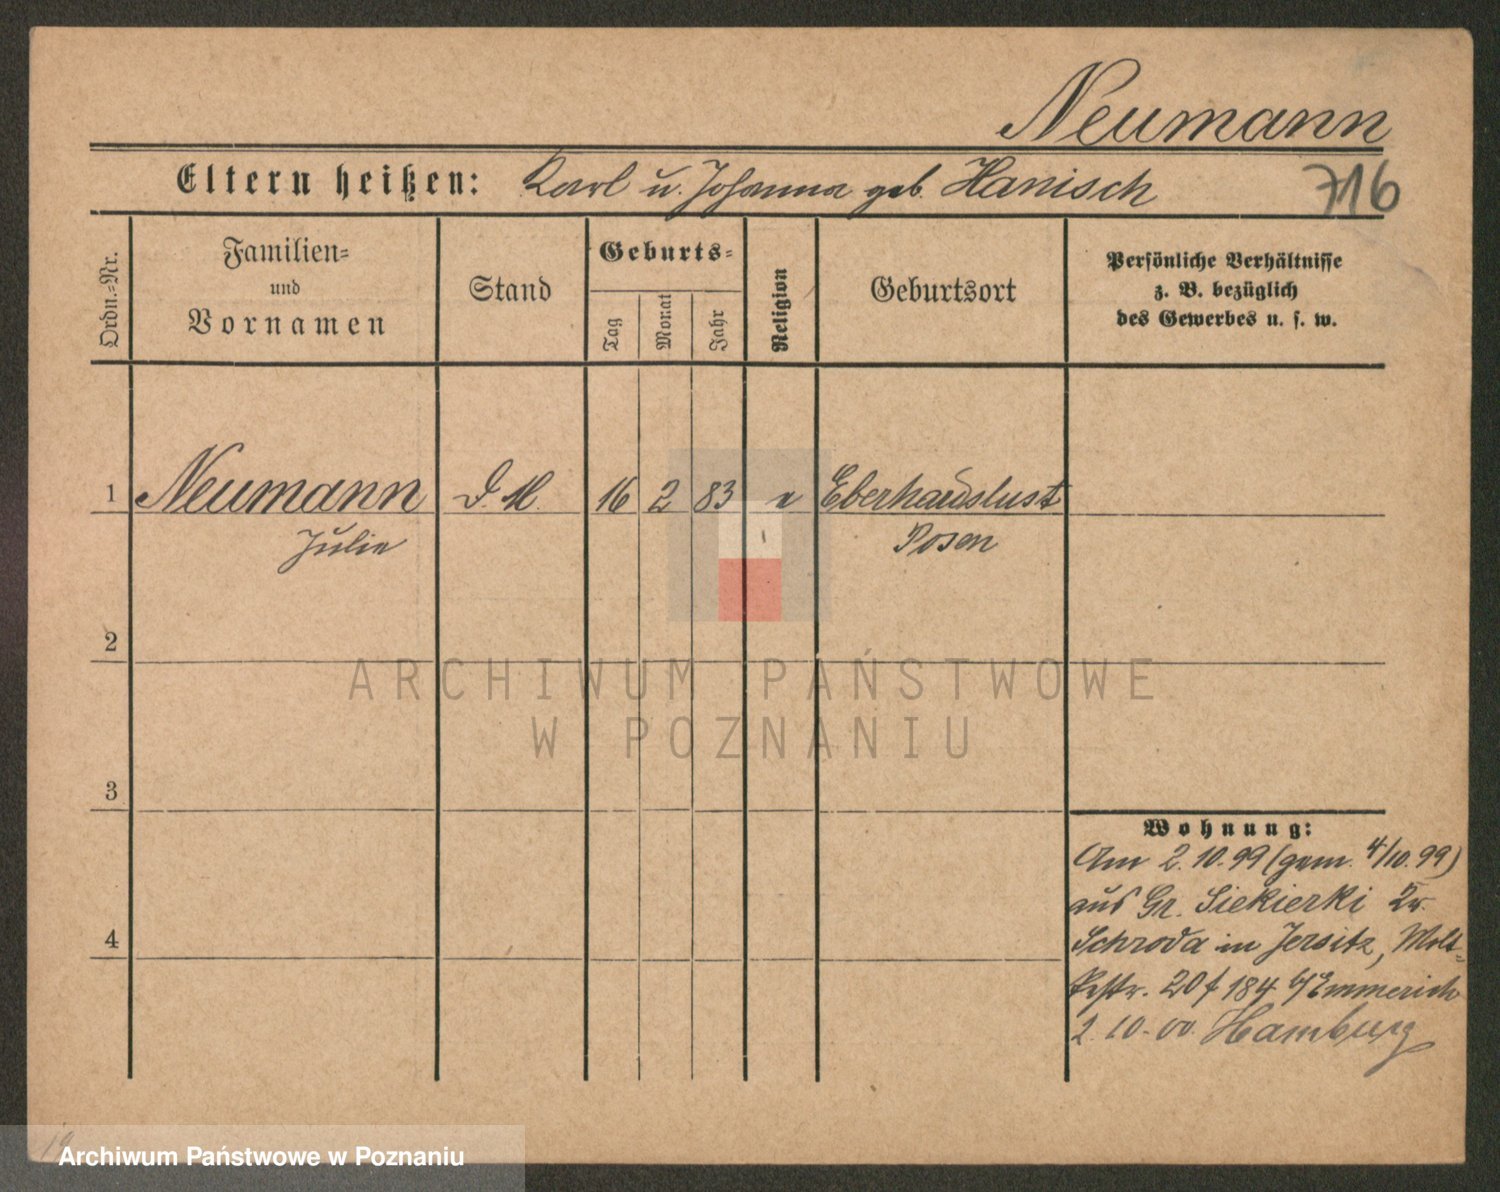 Neumann
Eltern heißen: Karl u. Johanna geb. Hanisch
716
Ordn.-Nr.
Familien-
und
Vornamen
Stand
Geburts-
Tag
Monat
Jahr
Religion
Geburtsort
Persönliche Verhältnisse
z. B. bezüglich
des Gewerbes u. s. w.
1 Neumann D. M. 16 2 83 e Eberhardslust
Julie Posen
2
3
4
ARCHIWUM PAŃSTWOWE
W POZNANIU
Wohnung:
Am 2.10.99 (gem. 4/10.99)
aus Gr. Siekierki Kr.
Schroda in Jersitz, Molt-
kestr. 20 f 184 b/Emmerich
2.10.00. Hamburg
Archiwum Państwowe w Poznaniu